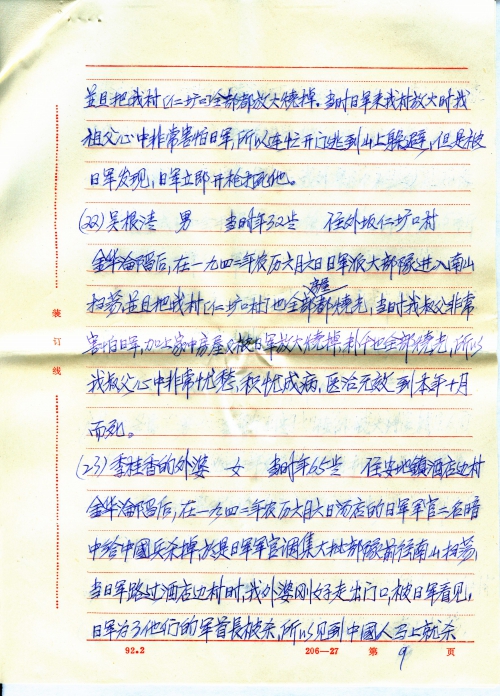 並且把我村(仁圹)全部都放大烧掉。当时日军来我村放火时我
祖父心中非常害怕日军,所以连忙开门逃到山上躲避,但是被
日军发现,日军立即开枪打死他。
(22)吴根清 男 当时年32岁 住外坂仁圹口村
金华沦陷后,在一九四二年农历六月六日日军派大部隊进入南山
房屋
扫荡,並且把我村(仁圹口村)也全部都烧光,当时我叔父非常
害怕日军,加上家中房屋又被日军放大烧掉,利千也全部烧光,所以
我叔父心中非常忧愁,积忧成病,医治无效到本年十月
而死。
(23)季桂香的外婆 女 当时年65岁 住安地镇酒店边村
金华沦陷后,在一九四二年农历六月六日汤店的日军军官二名暗
中给中國兵杀掉,於是日军军官调集大批部隊前往南山扫荡,
当日军路过酒店边村时,我外婆刚好走出门口,被日军看见,
日军为了他们的军首長被杀,所以见到中國人马上就杀
装订线
92.2 206—27 第 9 页